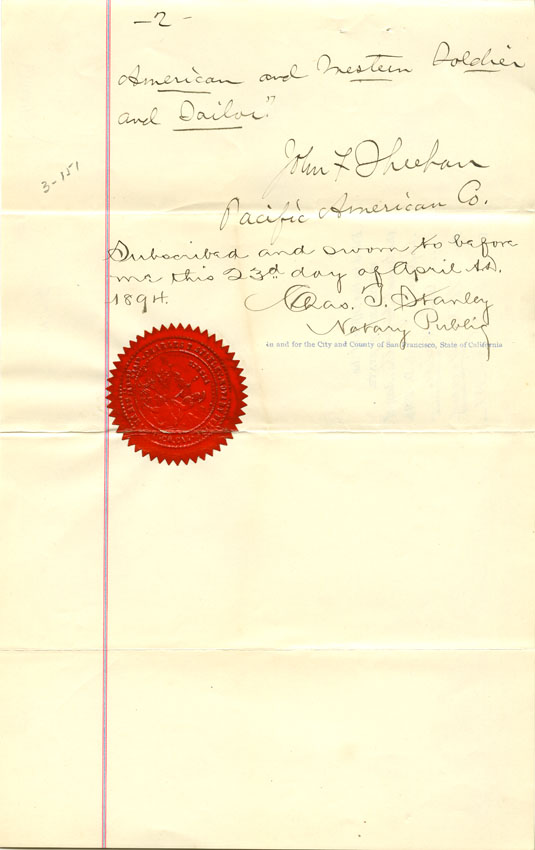 -2-
American and Western Soldier
and Sailor"
3-151
John F Sheehan
Pacific American Co.
Subscribed and sworn to before
me this 23d day of April A.D.
1894.
Chas. T. Stanley
Notary Public
in and for the City and County of San Francisco, State of California